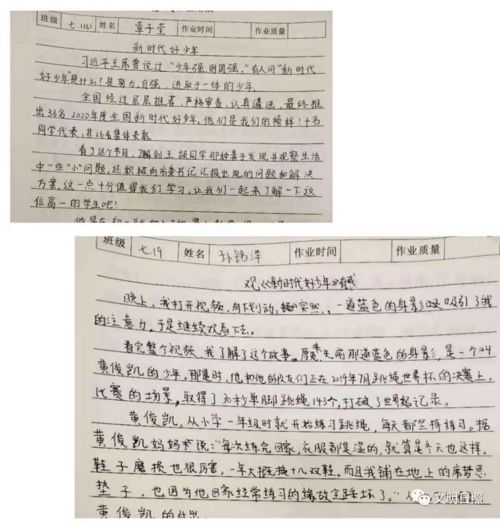 班级 七.(16) 姓名 覃子莹 作业时间 作业质量
新时代好少年
习近平主席曾说过“少年强,则国强,”有人问“新时代
好少年是什么?是努力,自强,进取于一体的少年。
全国经过层层推荐,严格审查,认真遴选,最终推
出36名2020年度全国新时代好少年,他们是我们的榜样!十名
同学代表,其26名集体表彰
看了这个节目,了解到王 同学那种善于发现并观察生活
中一些“小”问题,还积极向市委书记汇报出现的问题和解决
方案,这一点十分值得我们学习,让我们一起来了解一下这
位高一的学生吧!
班级 七.19 姓名 孙铭泽 作业时间 作业质量
观《新时代好少年》有感
晚上,我打开视频,向下划动,突然,一道蓝色的身影吸引了我
的注意力,于是继续观看下去。
看完整个视频,我了解了这个故事。原来先前那道蓝色的身影,是一个叫
黄俊凯的少年,那是时,他和他的队友们正在2019年7月跳绳世界杯的决赛上,
比赛的场景,取得了30秒单脚跳绳143个,打破了世界纪录。
黄俊凯,从小学一年级时就开始练习跳绳,每天都坚持练习。据
黄俊凯妈妈来说:“每次练完回家,衣服都是湿的,就算是冬天也这样,
鞋子磨损也很厉害,一年大概换十几双鞋。而且我铺在地上的席梦思
垫子,也因为他回家经常练习的缘故全踩坏了。”
黄俊凯的付出
文明信照